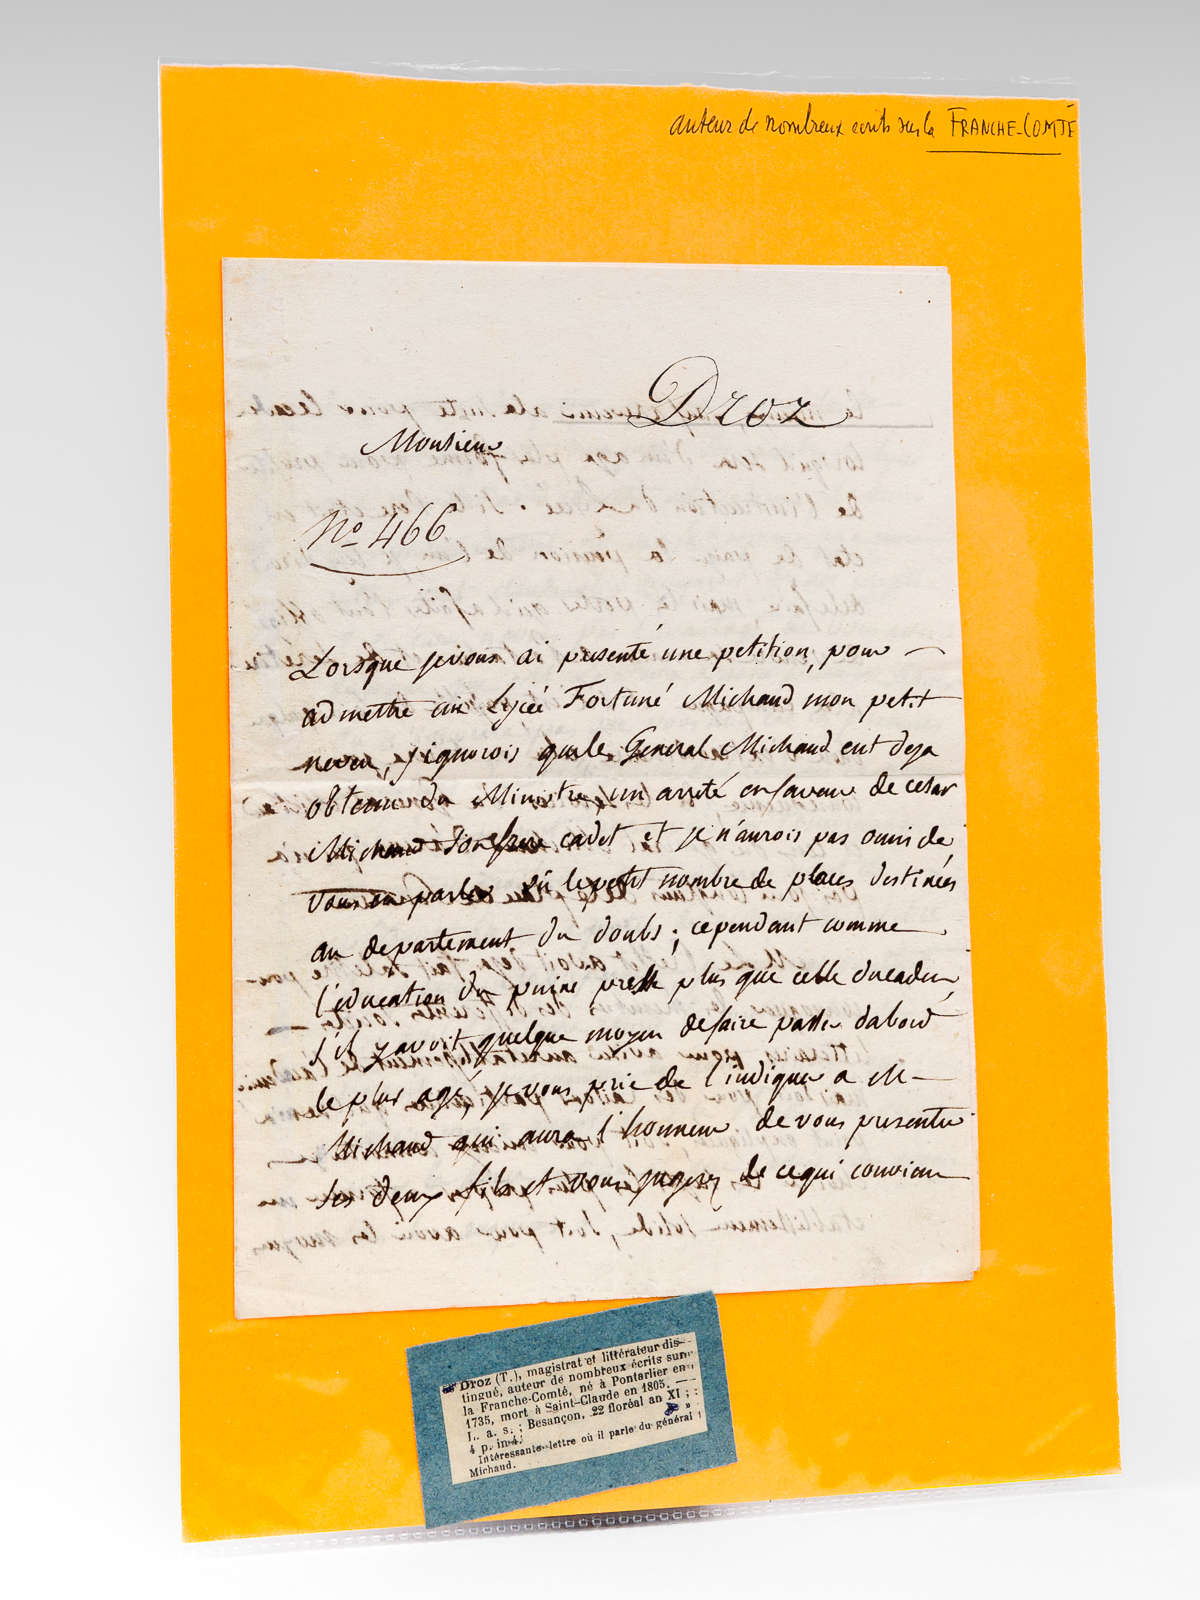 auteur de nombreux ecrits sur la FRANCHE-COMTÉ
Droz
Monsieur
No 466
Lorsque je vous ai presenté une petition, pour
admettre au Lycée Fortuné Michaud, mon petit
neveu, j'ignorois que le General Michaud eut deja
obtenu du Ministre un arreté en faveur de cesar
Michaud son frere cadet et je n'aurois pas omis de
vous en parler vû le petit nombre de places destinées
au departement du doubs; cependant comme
l'education du puiné presse plus que celle du cadet,
s'il y avoit quelque moyen de faire passer dabord
le plus agé, je vous prie de l'indiquer a M
Michaud qui aura l'honneur de vous presenter
ses deux fils et vous jugerez de ce qui convient
Droz (T.), magistrat et littérateur dis-
tingué, auteur de nombreux écrits sur
la Franche-Comté, né à Pontarlier en
1735, mort à Saint-Claude en 1805. —
L. a. s.; Besançon, 22 floréal an XI;
4 p. in-4.
Intéressante lettre où il parle du général
Michaud.